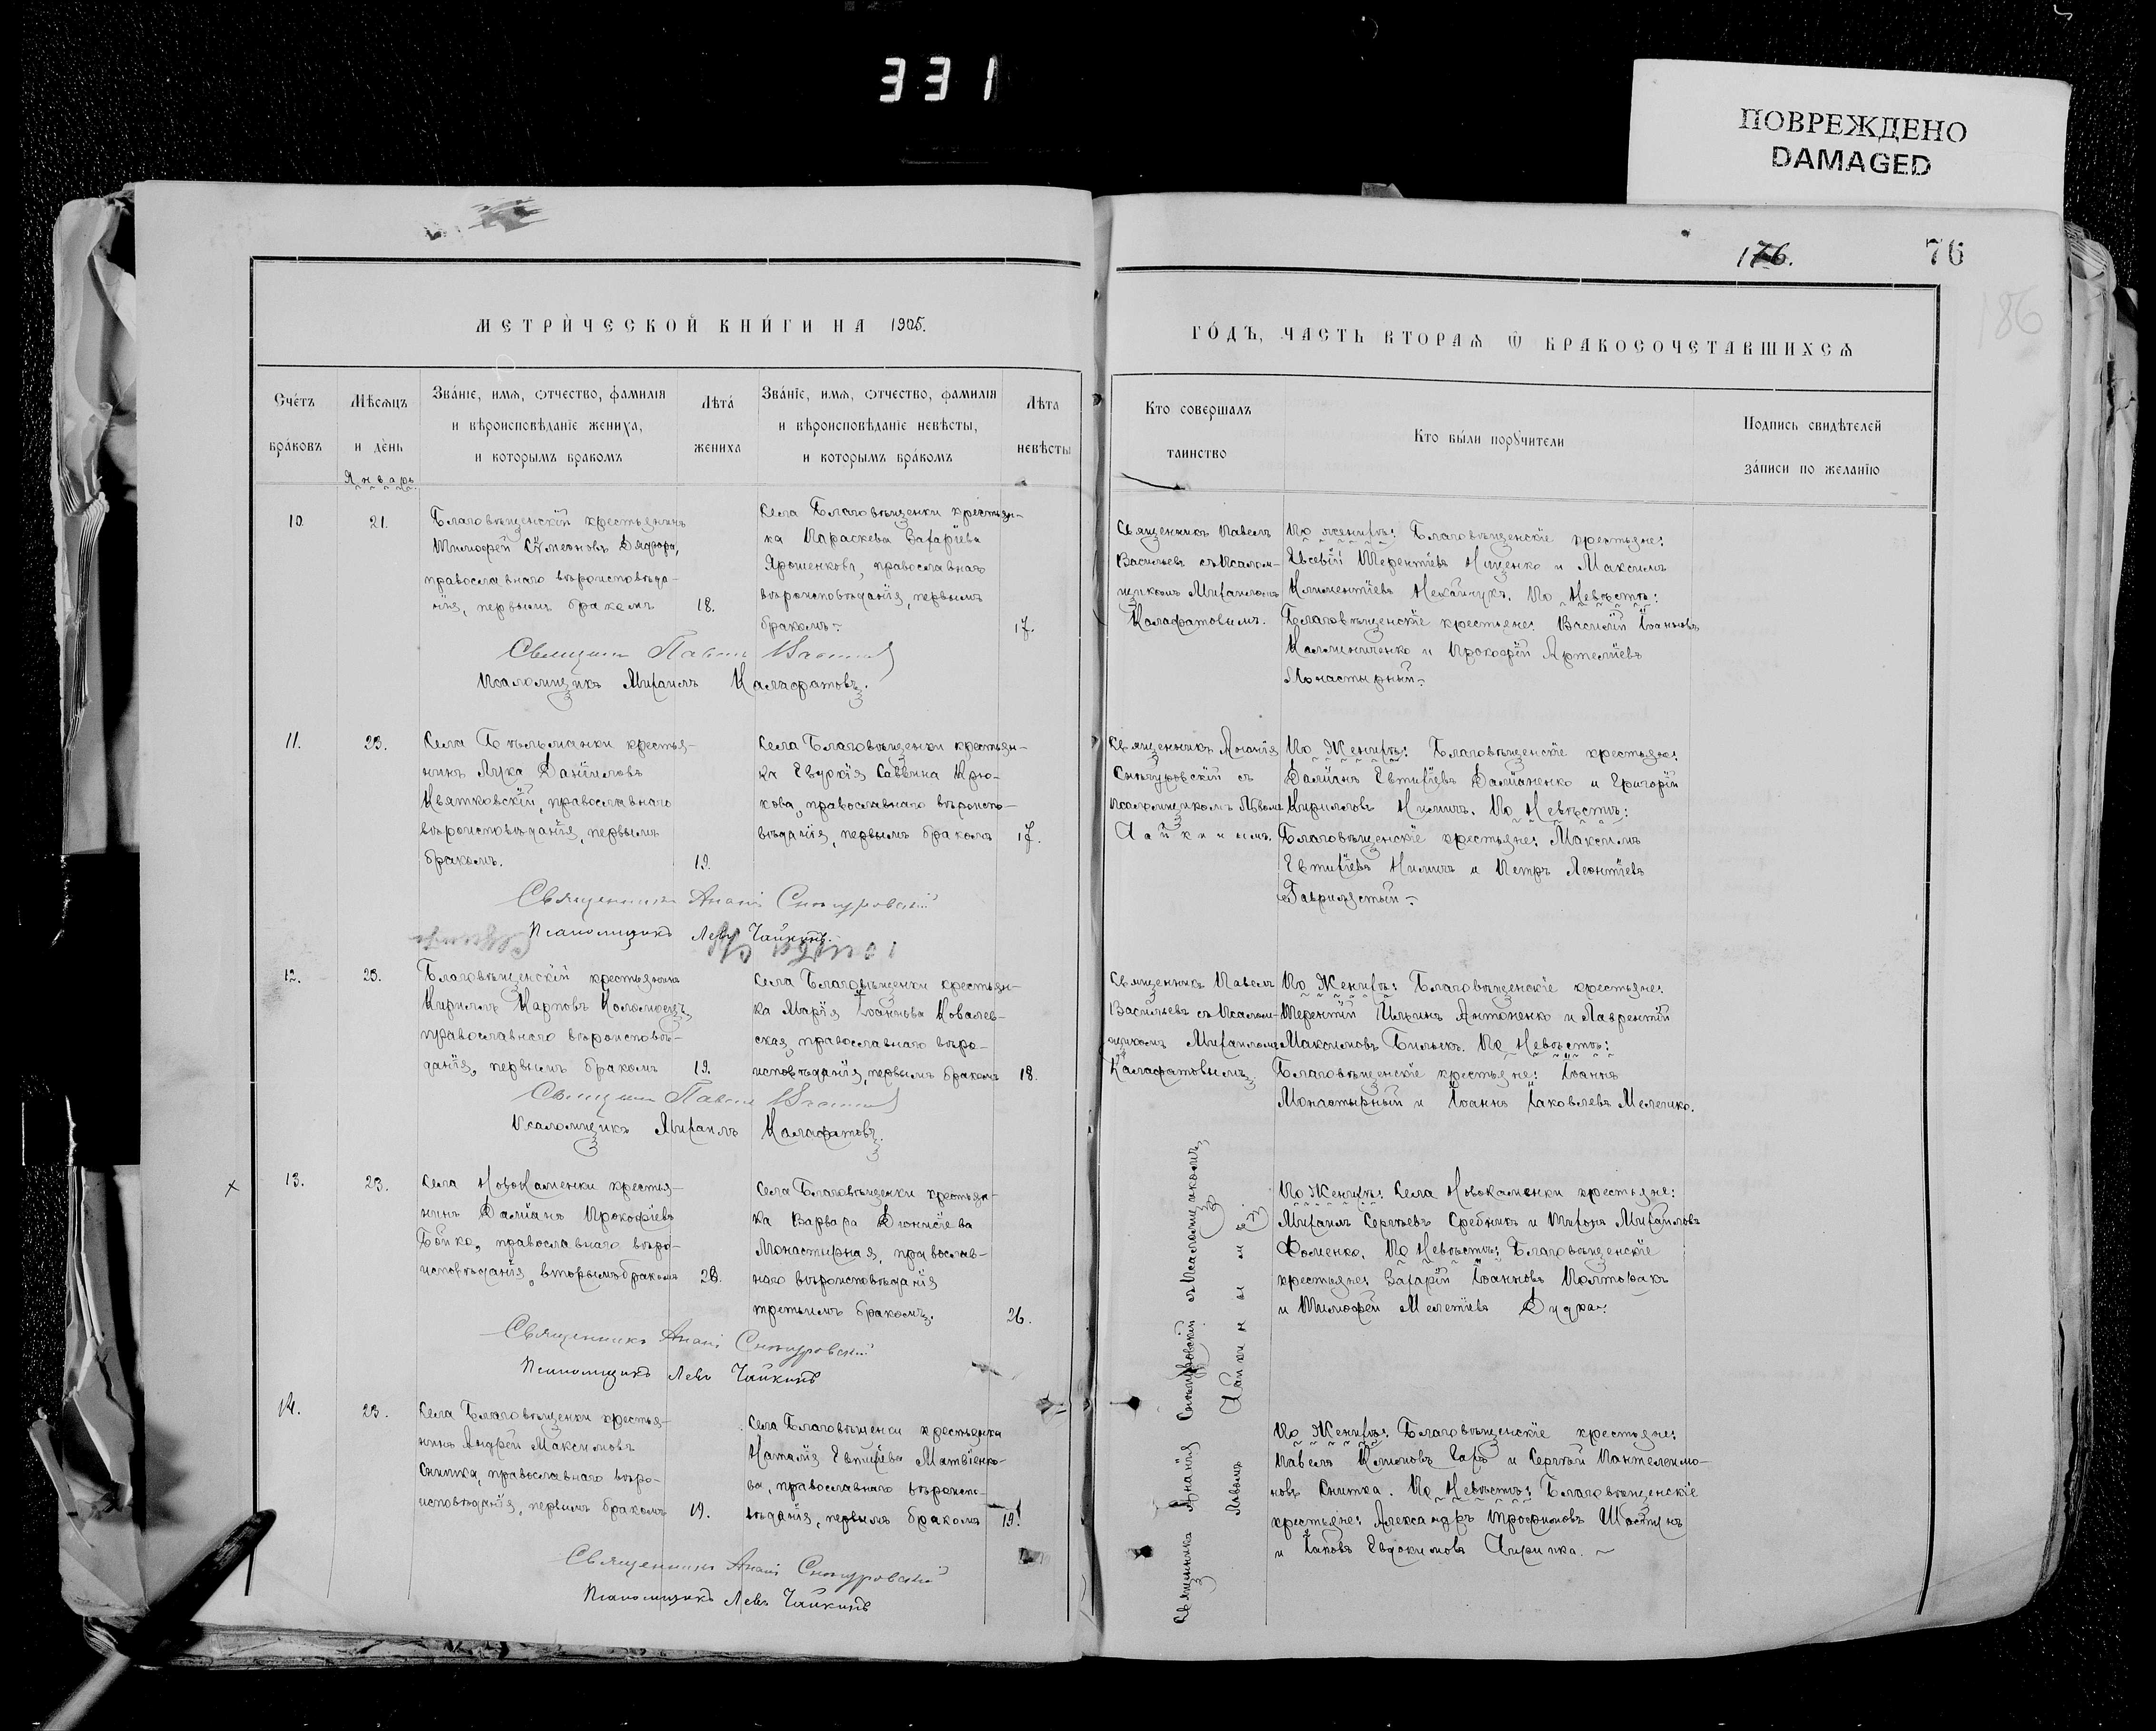 331
ПОВРЕЖДЕНО
DAMAGED
176.
76
186
МЕТРИ́ЧЕСКОЙ КНИ́ГИ НА 1905.
ГО́ДЪ, ЧАСТЬ ВТОРАѦ Ѿ БРАКОСОЧЕТАВШИХСѦ
Сче́тъ
бра́ковъ
Мѣсѧцъ
и де́нь
Январь
Зва́нїе, имѧ, ѻтчество, фамилїя
и вѣроисповѣданїе жениха,
и которымъ бракомъ
Лѣта́
жениха
Зва́нїе, имѧ, ѻтчество, фамилїя
и вѣроисповѣданїе невѣсты,
и которымъ бра́комъ
Лѣта
невѣсты
Кто соверша́лъ
таинство
Кто бы́ли порꙋчители
Подпись свидѣтелей
за́писи по жела́нїю
10.
21.
Благовѣщенскій крестьянинъ
Тимофей Сѵмеоновъ
православнаго вѣроисповѣда-
нія, первымъ бракомъ
18.
Села Благовѣщенки крестьян-
ка Параскева Захаріева
Ярошенкова, православнаго
вѣроисповѣданія, первымъ
бракомъ.
17.
Священникъ Павелъ
Васильевъ съ Псалом-
щикомъ Михаиломъ
Калафатовымъ.
По женихѣ: Благовѣщенскіе крестьяне:
Евсевій Терентіевъ Ищенко и Максимъ
Климентіевъ Нехайчукъ. По Невѣстѣ:
Благовѣщенскіе крестьяне: Василій Іоанновъ
Калиниченко и Прокофій Артеміевъ
Монастырный.
Священникъ Павелъ Васильевъ
Псаломщикъ Михаилъ Калафатовъ.
11.
23.
Села Бѣльманки крестья-
нинъ Лука Даніиловъ
Квятковскій, православнаго
вѣроисповѣданія, первымъ
бракомъ.
19.
Села Благовѣщенки крестьян-
ка Евдокія Саввина Крю-
кова, православнаго вѣроиспо-
вѣданія, первымъ бракомъ
17.
Священникъ Ананія
Снѣгуровскій съ
Псаломщикомъ Львомъ
Чайкинымъ.
По Женихѣ: Благовѣщенскіе крестьяне:
Даміанъ Евтихіевъ Даміаненко и Григорій
Кирилловъ Нимичъ. По Невѣстѣ:
Благовѣщенскіе крестьяне: Максимъ
Евтихіевъ Нимичъ и Петръ Леонтіевъ
Священникъ Ананія Снѣгуровскій
Псаломщикъ Левъ Чайкинъ.
12.
23.
Благовѣщенскій крестьянинъ
Кириллъ Карповъ Коломоецъ,
православнаго вѣроисповѣ-
данія, первымъ бракомъ
19.
Села Благовѣщенки крестьян-
ка Марія Іоаннова Ковалев-
ская, православнаго вѣро-
исповѣданія, первымъ бракомъ
18.
Священникъ Павелъ
Васильевъ съ Псалом-
щикомъ Михаиломъ
Калафатовымъ.
По Женихѣ: Благовѣщенскіе крестьяне:
Терентій Ильинъ Антоненко и Лаврентій
Максимовъ Билыкъ. По Невѣстѣ:
Благовѣщенскіе крестьяне: Іоаннъ
Монастырный и Іоаннъ Іаковлевъ Мелешко.
Священникъ Павелъ Васильевъ
Псаломщикъ Михаилъ Калафатовъ.
×
13.
23.
Села Новокаменки крестья-
нинъ Даміанъ Прокофіевъ
Бойко, православнаго вѣро-
исповѣданія, вторымъ бракомъ
28.
Села Благовѣщенки крестьян-
ка Варвара Діонисіева
Монастырная, православ-
наго вѣроисповѣданія
третьимъ бракомъ.
26.
Священникъ Ананія Снѣгуровскій съ Псаломщикомъ
Львомъ Чайкинымъ
По Женихѣ: Села Новокаменки крестьяне:
Михаилъ Сергѣевъ Сребникъ и Тихонъ Михаиловъ
Фоменко. По Невѣстѣ: Благовѣщенскіе
крестьяне: Захарій Іоанновъ Полтавакъ
и Тимофей Мелетіевъ Дудка.
Священникъ Ананія Снѣгуровскій
Псаломщикъ Левъ Чайкинъ
14.
23.
Села Благовѣщенки крестья-
нинъ Андрей Максимовъ
Снитка, православнаго вѣро-
исповѣданія, первымъ бракомъ
19.
Села Благовѣщенки крестьянка
Наталія Евтихіева Матвіенко-
ва, православнаго вѣроиспо-
вѣданія, первымъ бракомъ
19.
По Женихѣ: Благовѣщенскіе крестьяне:
Павелъ Климовъ и Сергѣй Пантелеимо-
новъ Снитка. По Невѣстѣ: Благовѣщенскіе
крестьяне: Александръ Трофимовъ
и Іаковъ Евдокимовъ Чирипка.
Священникъ Ананія Снѣгуровскій
Псаломщикъ Левъ Чайкинъ